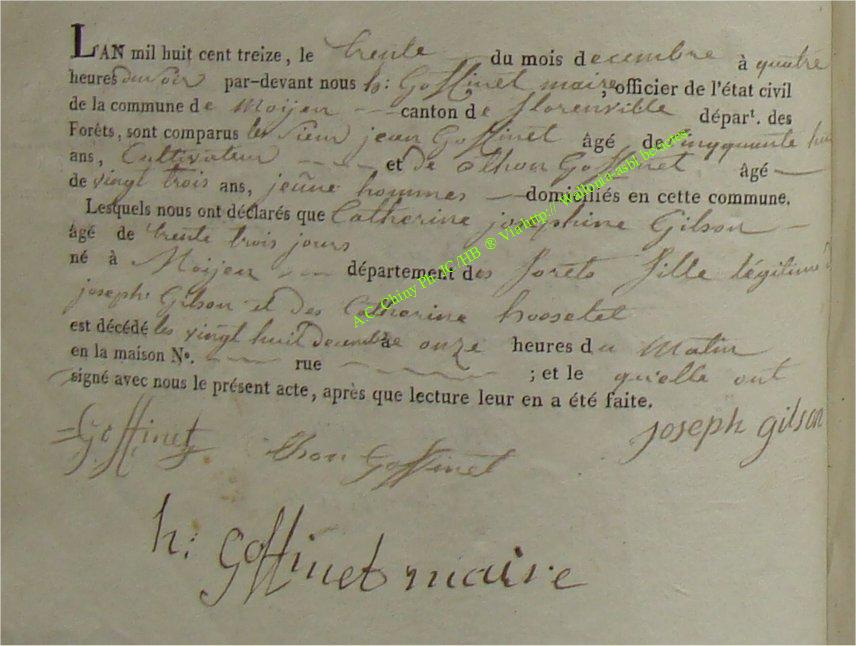 L'AN mil huit cent treize, le trente du mois decembre à quatre
heures du soir par-devant nous h: Goffinet maire, officier de l'état civil
de la commune de Moijen canton de florenville départ. des
Forêts, sont comparus les sieur jean Goffinet âgé de cinqquante huit
ans, Cultivateur et de Goffinet âgé
de vingt trois ans, jeûne hommes domiciliés en cette commune.
Lesquels nous ont déclarés que Catherine josephine Gilson
âgé de trente trois jours
né à Moijen département des forets fille légitime
joseph Gilson et des Catherine hosselet
est décédé les vingt huit decembre à onze heures du Matin
en la maison N°. rue ; et le quelle ont
signé avec nous le présent acte, après que lecture leur en a été faite.
Goffinet Goffinet joseph gilson
h: Goffinet maire
A.C. Chiny Ph JC/HB ® Via http:// Wallonia-asbl.be